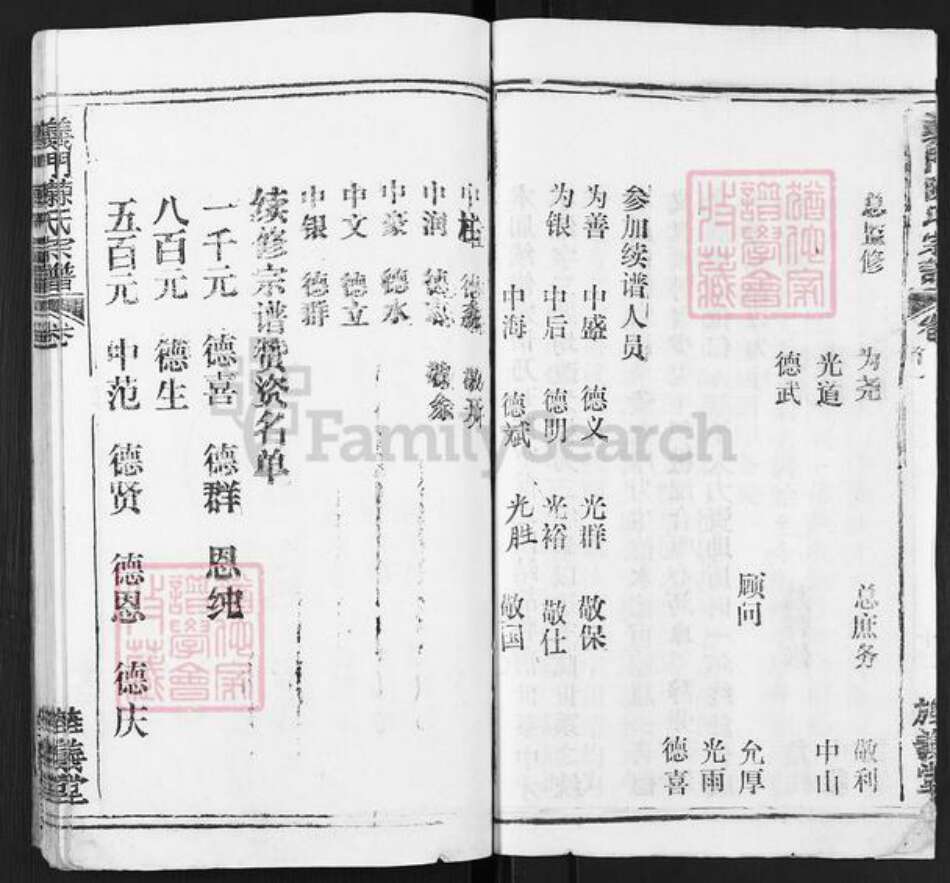 总监修 为尧 总庶务 敬利
光道 中山
德武
顾问 允厚
光雨
德喜
参加续谱人员
为善 中盛 德义 光群 敬保
为银 中后 德明 光裕 敬仕
中海 德斌 光胜 敬国
中桂
中润
中豪 德水
中文 德立
中银 德群
续修宗谱赞资名单
一千元 德喜 德群 恩纯
八百元 德生
五百元 中范 德贤 德恩 德庆
氏宗谱
卷
義堂
FamilySearch
譜學會
收藏